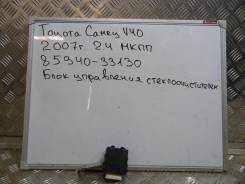 Toyota Camry V40
2007г 2.4 МКПП
85940-33130
Блок управления стеклоочистителем